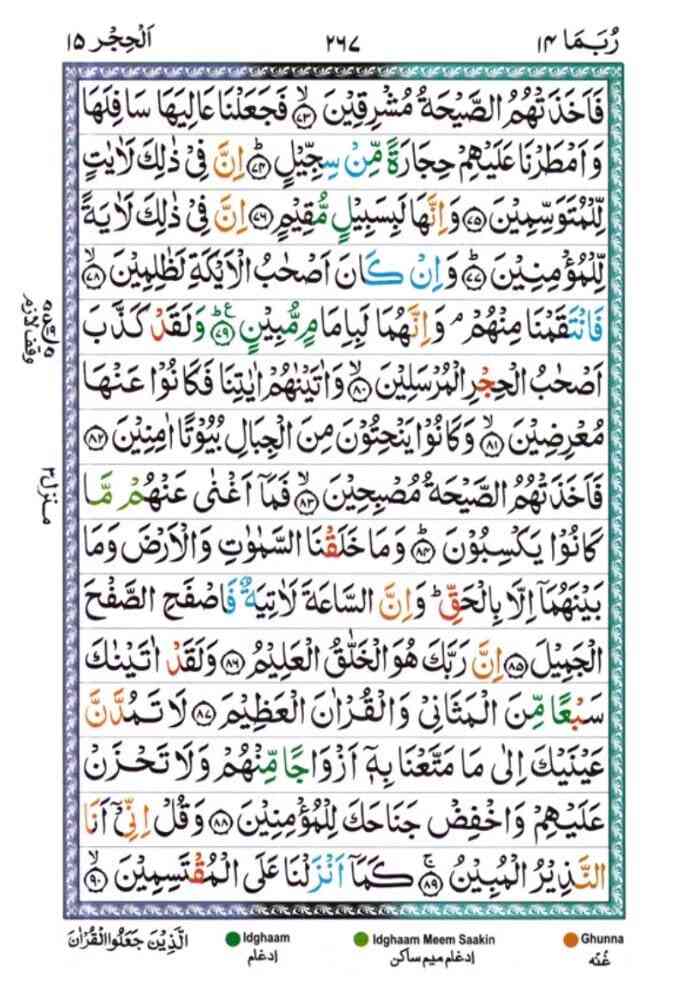 رُبَمَا ١٤
٢٦٧
اَلْحِجْر ١٥
فَاَخَذَتْهُمُ الصَّيْحَةُ مُشْرِقِيْنَ ۙ‏﴿۷۳﴾ فَجَعَلْنَا عَالِيَهَا سَافِلَهَا
وَاَمْطَرْنَا عَلَيْهِمْ حِجَارَةً مِّنْ سِجِّيْلٍ ؕ‏﴿۷۴﴾ اِنَّ فِىْ ذٰلِكَ لَاٰيٰتٍ
لِّلْمُتَوَسِّمِيْنَ ‏﴿۷۵﴾ وَاِنَّهَا لَبِسَبِيْلٍ مُّقِيْمٍ ‏﴿۷۶﴾ اِنَّ فِىْ ذٰلِكَ لَاٰيَةً
لِّلْمُؤْمِنِيْنَ ؕ‏﴿۷۷﴾ وَاِنْ كَانَ اَصْحٰبُ الْاَيْكَةِ لَظٰلِمِيْنَ ۙ‏﴿۷۸﴾
فَانْتَقَمْنَا مِنْهُمْ ۘ وَاِنَّهُمَا لَبِاِمَامٍ مُّبِيْنٍ ؕ‏﴿۷۹﴾ وَلَقَدْ كَذَّبَ
اَصْحٰبُ الْحِجْرِ الْمُرْسَلِيْنَ ۙ‏﴿۸۰﴾ وَاٰتَيْنٰهُمْ اٰيٰتِنَا فَكَانُوْا عَنْهَا
مُعْرِضِيْنَ ۙ‏﴿۸۱﴾ وَكَانُوْا يَنْحِتُوْنَ مِنَ الْجِبَالِ بُيُوْتًا اٰمِنِيْنَ ‏﴿۸۲﴾
فَاَخَذَتْهُمُ الصَّيْحَةُ مُصْبِحِيْنَ ۙ‏﴿۸۳﴾ فَمَاۤ اَغْنٰى عَنْهُمْ مَّا
كَانُوْا يَكْسِبُوْنَ ؕ‏﴿۸۴﴾ وَمَا خَلَقْنَا السَّمٰوٰتِ وَالْاَرْضَ وَمَا
بَيْنَهُمَاۤ اِلَّا بِالْحَقِّ ؕ وَاِنَّ السَّاعَةَ لَاٰتِيَةٌ فَاصْفَحِ الصَّفْحَ
الْجَمِيْلَ ‏﴿۸۵﴾ اِنَّ رَبَّكَ هُوَ الْخَلّٰقُ الْعَلِيْمُ ‏﴿۸۶﴾ وَلَقَدْ اٰتَيْنٰكَ
سَبْعًا مِّنَ الْمَثَانِىْ وَالْقُرْاٰنَ الْعَظِيْمَ ‏﴿۸۷﴾ لَا تَمُدَّنَّ
عَيْنَيْكَ اِلٰى مَا مَتَّعْنَا بِهٖۤ اَزْوَاجًا مِّنْهُمْ وَلَا تَحْزَنْ
عَلَيْهِمْ وَاخْفِضْ جَنَاحَكَ لِلْمُؤْمِنِيْنَ ‏﴿۸۸﴾ وَقُلْ اِنِّىْۤ اَنَا
النَّذِيْرُ الْمُبِيْنُ ۚ‏﴿۸۹﴾ كَمَاۤ اَنْزَلْنَا عَلَى الْمُقْتَسِمِيْنَ ۙ‏﴿۹۰﴾
وقف لازم
منزل ٣
الَّذِيْنَ جَعَلُوا الْقُرْاٰنَ
Idghaam
ادغام
Idghaam Meem Saakin
ادغام ميم ساكن
Ghunna
غُنّه